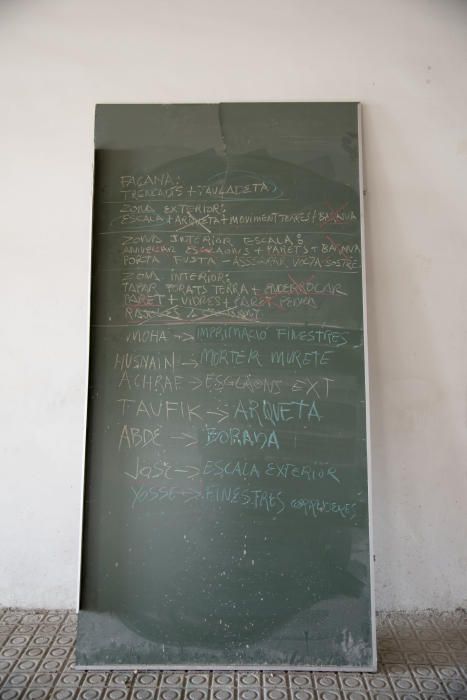 FAÇANA:
TRENCAIGÜES + TAULADETA
ZONA EXTERIOR:
ESCALA + ARQUETA + MOVIMENT TERRES / BARANA
ZONA INTERIOR ESCALA:
ANIVELLAR ESGLAONS + PARETS + BARANA
PORTA FUSTA - ASSEGURAR VOLTA SOSTRE
ZONA INTERIOR:
TAPAR FORATS TERRA + ENDERROCAR
PARET + VIDRES + PARET PEDRA
RAJOLES
MOHA -> IMPRIMACIÓ FINESTRES
HUSNAIN -> MORTER MURETE
ACHRAF -> ESGLAONS EXT
TAUFIK -> ARQUETA
ABDE -> BORANA
JOSE -> ESCALA EXTERIOR
YOSSE -> FINESTRES CORREDERES